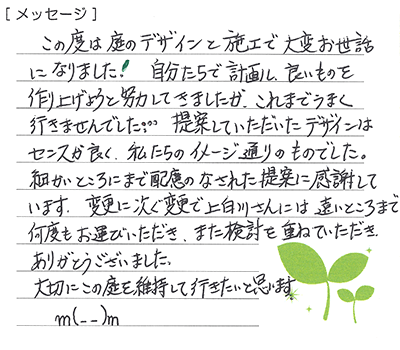 [メッセージ]
この度は庭のデザインと施工で大変お世話
になりました! 自分たちで計画し、良いものを
作り上げようと努力してきましたが、これまでうまく
行きませんでした… 提案していただいたデザインは
センスが良く、私たちのイメージ通りのものでした。
細かいところにまで配慮のなされた提案に感謝して
います。変更に次ぐ変更で上白川さんには遠いところまで
何度もお運びいただき、また検討を重ねていただき
ありがとうございました。
大切にこの庭を維持して行きたいと思います。
m(_ _)m